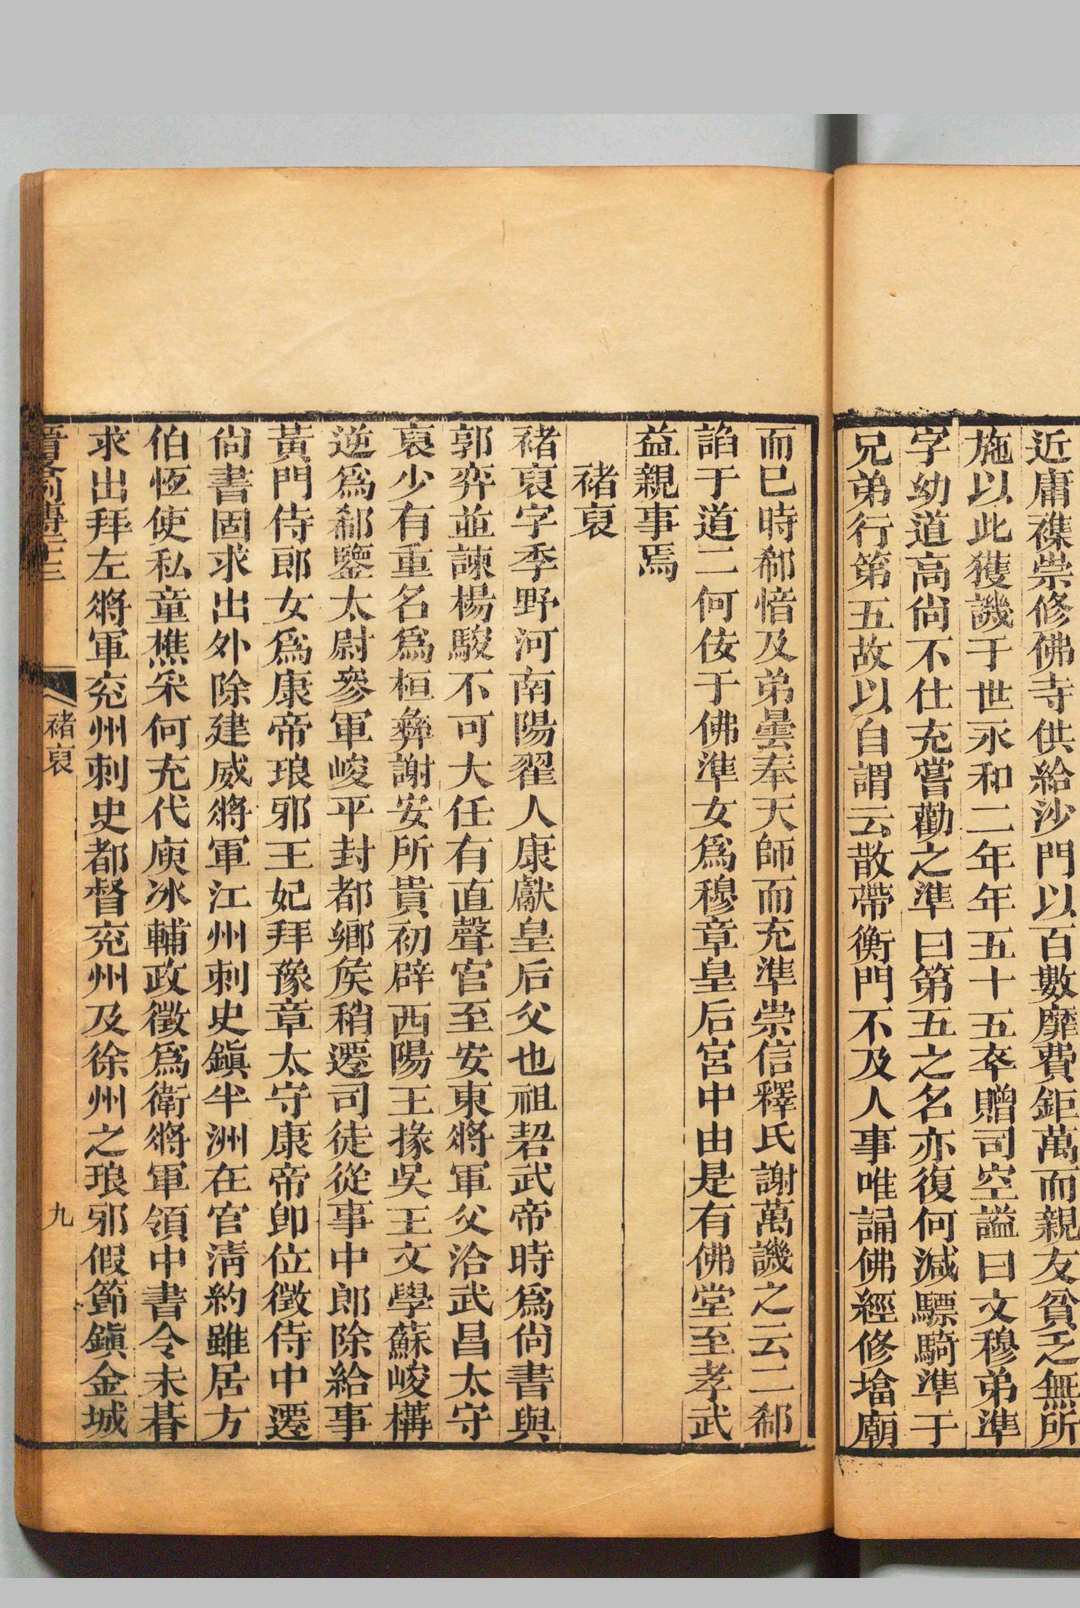 近庸襍崇修佛寺供給沙門以百數靡費鉅萬而親友貧乏無所
施以此獲譏于世永和二年年五十五卒贈司空謚曰文穆弟準
字幼道高尚不仕充嘗勸之準曰第五之名亦復何減驃騎準于
兄弟行第五故以自謂云散帶衡門不及人事唯誦佛經修墖廟
而已時郗愔及弟曇奉天師而充準崇信釋氏謝萬譏之云二郗
諂于道二何佞于佛準女爲穆章皇后宮中由是有佛堂至孝武
益親事焉
褚裒
褚裒字季野河南陽翟人康獻皇后父也祖䂮武帝時爲尙書與
郭弈並諫楊駿不可大任有直聲官至安東將軍父洽武昌太守
裒少有重名爲桓彝謝安所貴初辟西陽王掾吳王文學蘇峻構
逆爲郗鑒太尉參軍峻平封都鄉矦稍遷司徒從事中郎除給事
黃門侍郎女爲康帝琅邪王妃拜豫章太守康帝卽位徵侍中遷
尙書固求出外除建威將軍江州刺史鎭半洲在官淸約雖居方
伯恆使私童樵采何充代庾冰輔政徵爲衞將軍領中書令未朞
求出拜左將軍兗州刺史都督兗州及徐州之琅邪假節鎭金城
褚裒
九